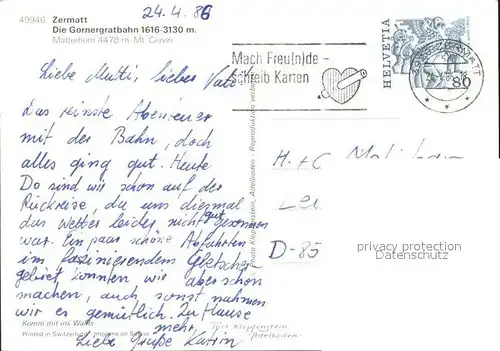 49946 Zermatt
Die Gornergratbahn 1616-3130 m.
Matterhorn 4478 m. Mt. Cervin
24.4.86
Mach Freu(n)de -
schreib Karten
HELVETIA
80
ZERMATT
Liebe Mutti, lieber Vati!
Das reinste Abenteuer
mit der Bahn, doch
alles ging gut. Heute
Do sind wir schon auf der
Rückreise, da uns diesmal
das Wetter leider nicht gut gesonnen
war. Ein paar schöne Abfahrten
im faszinierendem Gletscher-
gebiet konnten wir aber schon
machen, auch sonst nahmen
wir es gemütlich. Zu Hause
mehr,
Liebe Grüße Katrin
H. + C.
D-85
privacy protection
Datenschutz
Photo Klopfenstein, Adelboden - Reproduktion verboten
Komm mit ins Wallis
Printed in Switzerland - Imprimé en Suisse
Klopfenstein
Adelboden